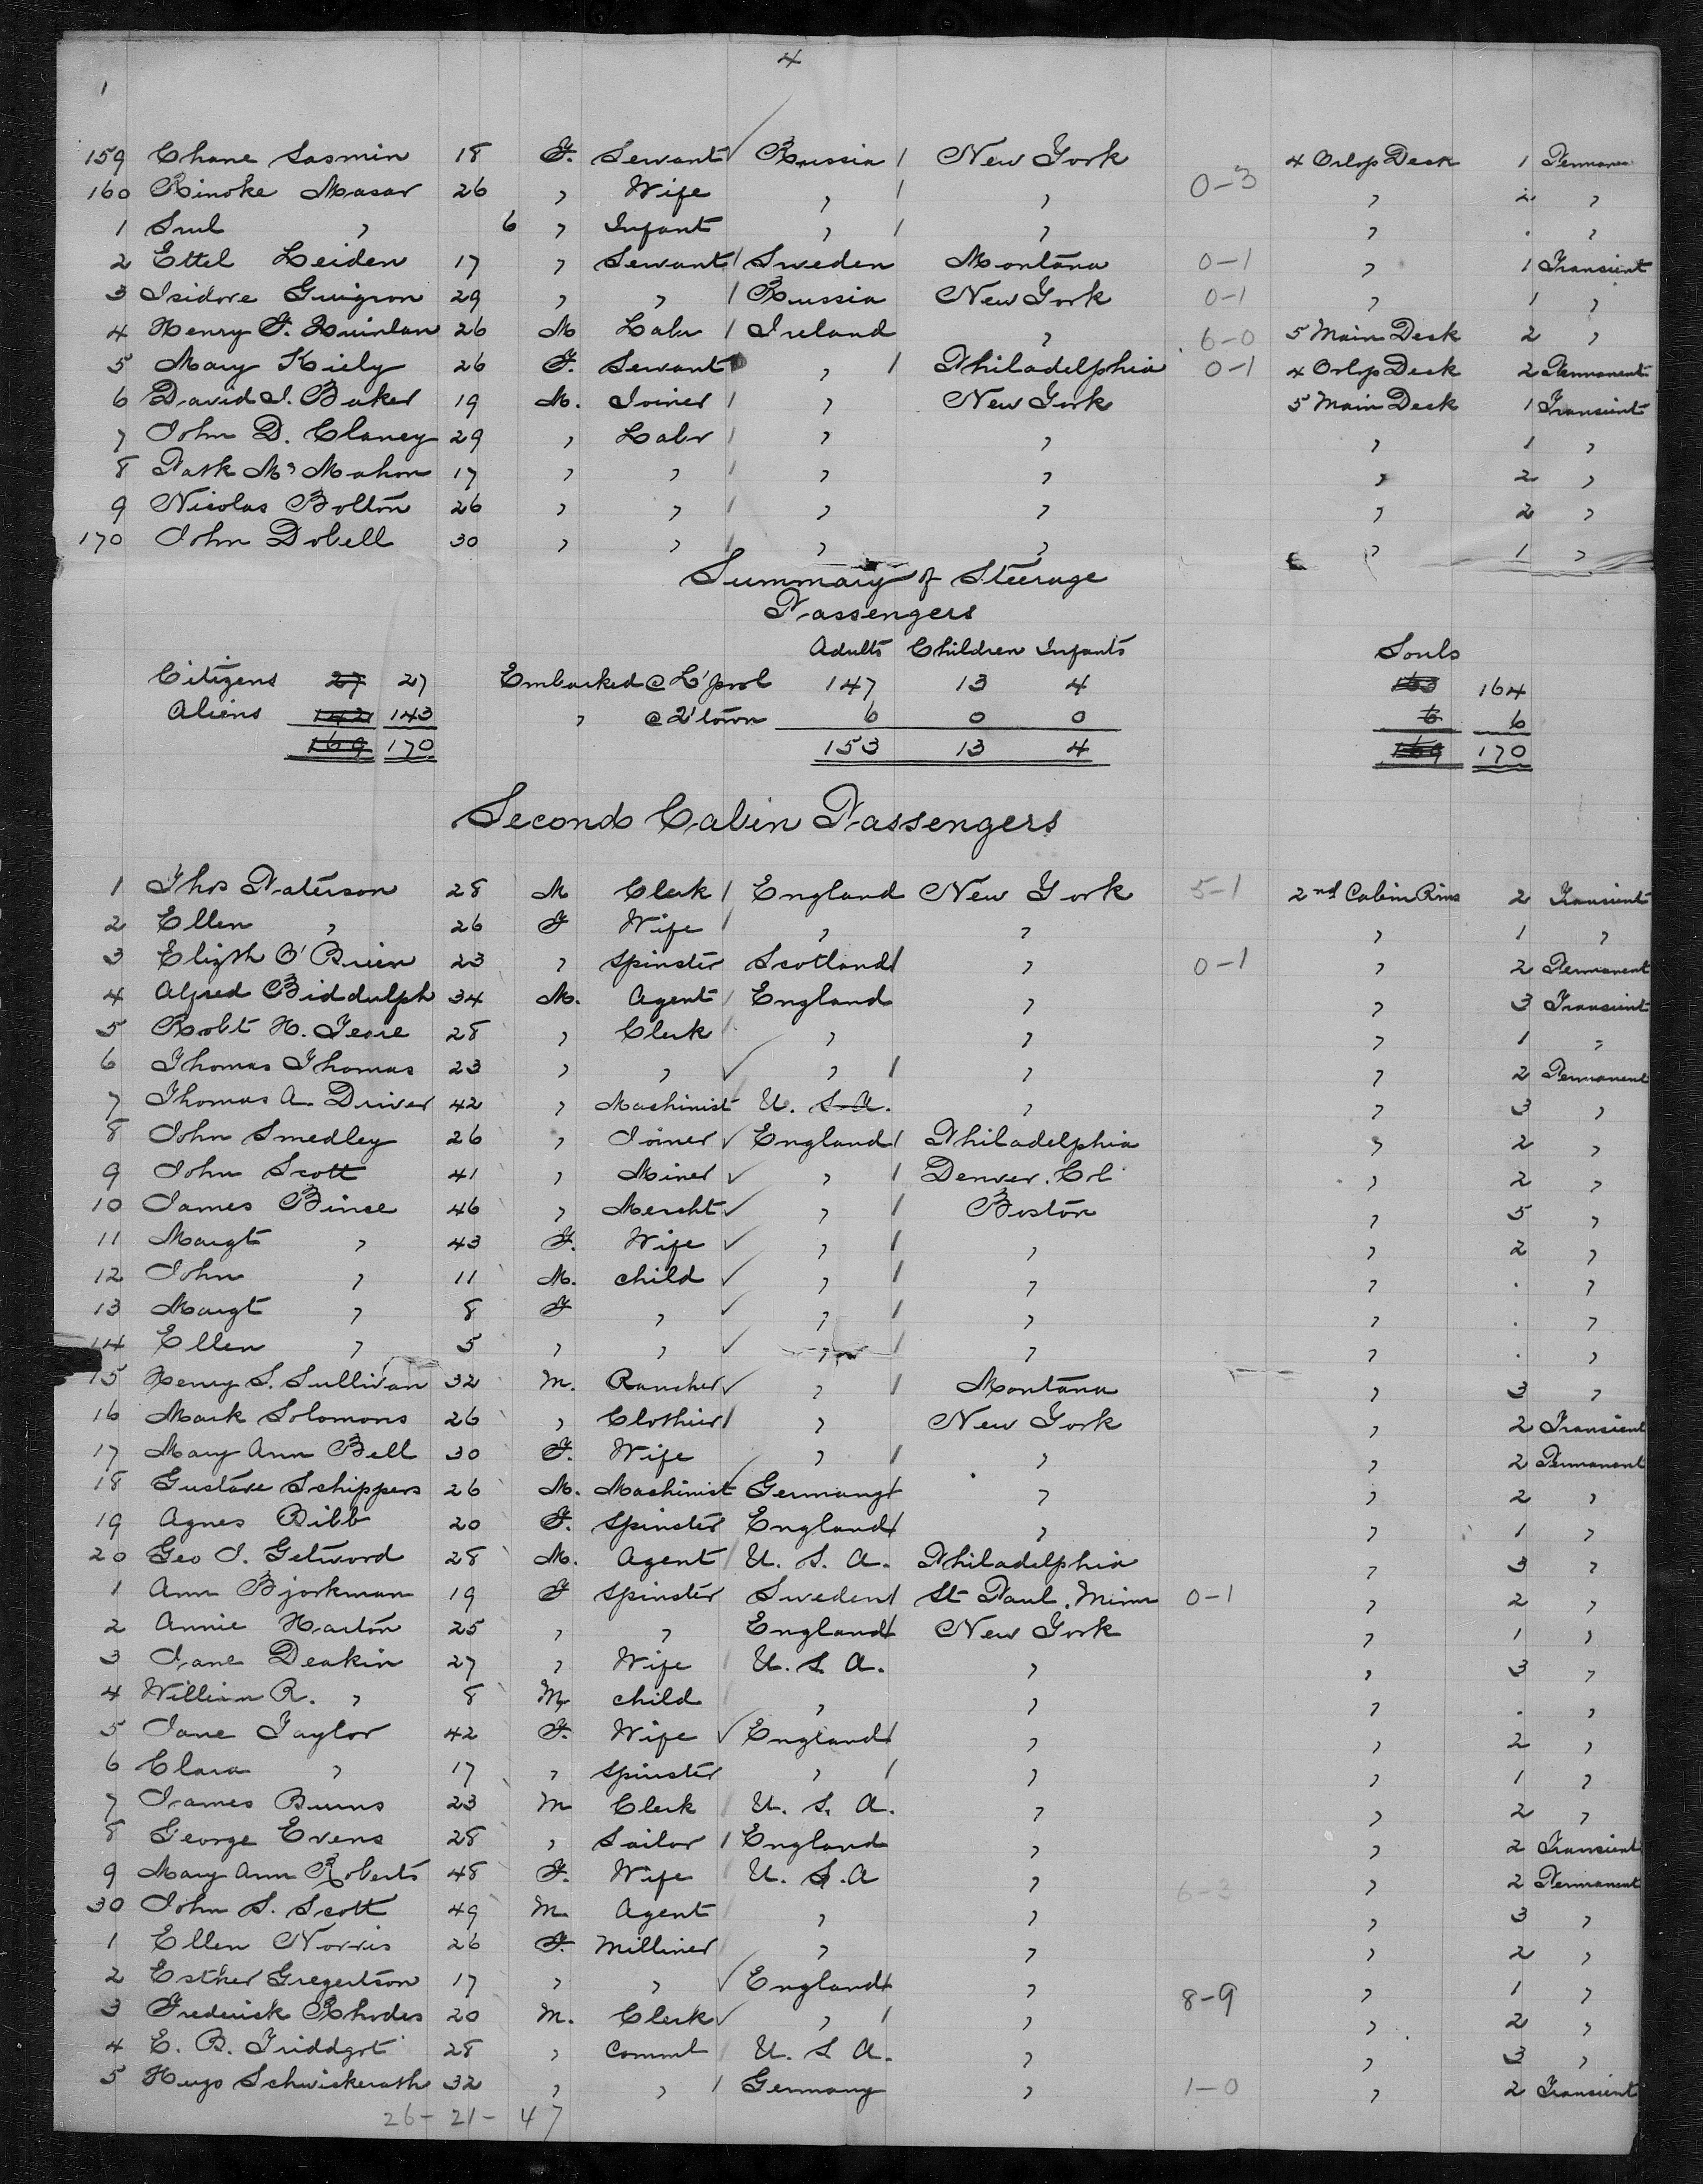 4
1
159 Chane Sasmin 18 F. Servant Russia New York 4 Orlop Deck 1 Permanent
160 Rinoke Masar 26 " Wife " " 0-3 " 2 "
1 Srul " 6 " Infant " " " . "
2 Ettel Leiden 17 " Servant Sweden Montana 0-1 " 1 Transient
3 Isidore Guigron 29 " " Russia New York 0-1 " 1 "
4 Henry F. Quinlan 26 M Labr Ireland " 6-0 5 Main Deck 2 "
5 Mary Kiely 26 F. Servant " Philadelphia 0-1 4 Orlop Deck 2 Permanent
6 David I. Baker 19 M. Joiner " New York 5 Main Deck 1 Transient
7 John D. Clancy 29 " Labr " " " 1 "
8 Patk Mc Mahon 17 " " " " " 2 "
9 Nicolas Bolton 26 " " " " " 2 "
170 John Dobell 30 " " " " " 1 "
Summary of Steerage
Passengers
Adults Children Infants Souls
Citizens 27 27 Embarked @ L'pool 147 13 4 163 164
Aliens 142 143 " @ Q'town 6 0 0 6 6
169 170 153 13 4 169 170
Second Cabin Passengers
1 Thos Paterson 28 M Clerk England New York 5-1 2nd Cabin Rms 2 Transient
2 Ellen " 26 F Wife " " " 1 "
3 Elizth O'Brien 23 " Spinster Scotland " 0-1 " 2 Permanent
4 Alfred Biddulph 34 M. Agent England " " 3 Transient
5 Robt H. 28 " Clerk " " " 1 "
6 Thomas Thomas 23 " " " " " 2 Permanent
7 Thomas A. Driver 42 " Machinist U. S. A. " " 3 "
8 John Smedley 26 " Joiner England Philadelphia " 2 "
9 John Scott 41 " Miner " Denver. Col " 2 "
10 James Bince 46 " Mercht " Boston " 5 "
11 Margt " 43 F. Wife " " " 2 "
12 John " 11 M. child " " " . "
13 Margt " 8 F " " " " . "
14 Ellen " 5 " " " " " . "
15 Henry S. Sullivan 32 M. Rancher " Montana " 3 "
16 Mark Solomons 26 " Clothier " New York " 2 Transient
17 Mary Ann Bell 30 F. Wife " " " 2 Permanent
18 Gustave Schippers 26 M. Machinist Germany " " 2 "
19 Agnes Bibb 20 F. Spinster England " " 1 "
20 Geo I. 28 M. Agent U. S. A. Philadelphia " 3 "
1 Ann Bjorkman 19 F Spinster Sweden St Paul. Minn 0-1 " 2 "
2 Annie Harton 25 " " England New York " 1 "
3 Jane Deakin 27 " Wife U. S. A. " " 3 "
4 William R. " 8 M child " " " . "
5 Jane Taylor 42 F. Wife England " " 2 "
6 Clara " 17 " Spinster " " " 1 "
7 James Burns 23 M Clerk U. S. A. " " 2 "
8 George Evens 28 " Sailor England " " 2 Transient
9 Mary Ann Roberts 48 F. Wife U. S. A " 6-3 " 2 Permanent
30 John S. Scott 49 M. Agent " " " 3 "
1 Ellen Norris 26 F. Milliner " " " 2 "
2 Esther Gregertson 17 " " England " 8-9 " 1 "
3 Frederick Rhodes 20 M. Clerk " " " 2 "
4 E. B. 28 " Comml U. S. A. " " 3 "
5 Hugo Schwickerath 32 " " Germany " 1-0 " 2 Transient
26-21-47